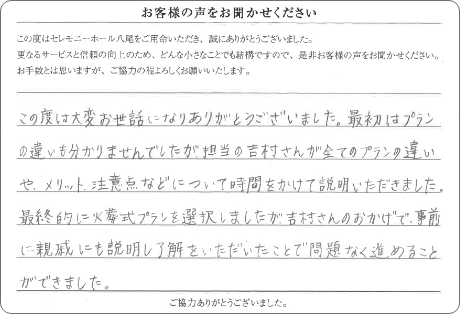 お客様の声をお聞かせください
この度はセレモニーホール八尾をご用命いただき、誠にありがとうございました。
更なるサービスと信頼の向上のため、どんな小さなことでも結構ですので、是非お客様の声をお聞かせください。
お手数とは思いますが、ご協力の程よろしくお願いいたします。
この度は大変お世話になりありがとうございました。最初はプラン
の違いも分かりませんでしたが担当の吉村さんが全てのプランの違い
や、メリット、注意点などについて時間をかけて説明いただきました。
最終的に火葬式プランを選択しましたが吉村さんのおかげで、事前
に親戚にも説明し了解をいただいたことで問題なく進めること
ができました。
ご協力ありがとうございました。